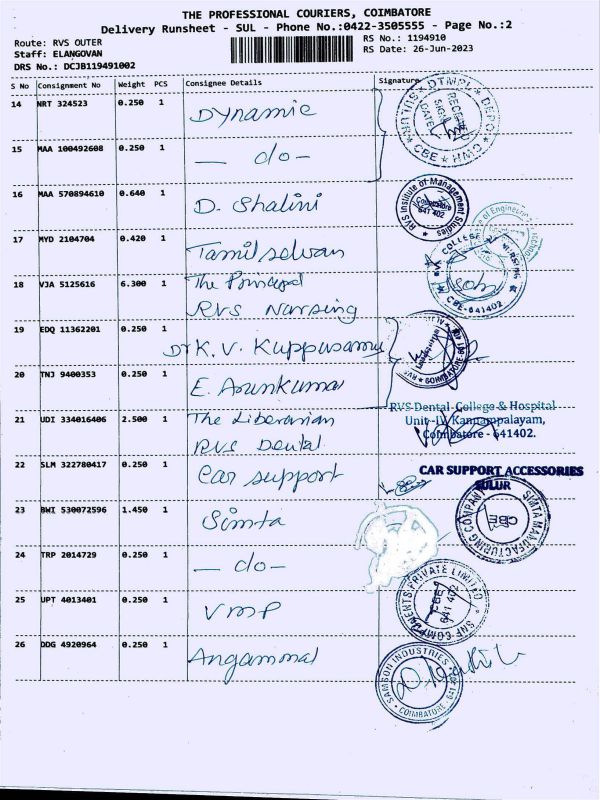 THE PROFESSIONAL COURIERS, COIMBATORE
Delivery Runsheet - SUL - Phone No.:0422-3505555 - Page No.:2
Route: RVS OUTER
Staff: ELANGOVAN
DRS No.: DCJB119491002
RS No.: 1194910
RS Date: 26-Jun-2023
S No Consignment No Weight PCS Consignee Details Signature
14 NRT 324523 0.250 1 Dynamic
SULUR * DTMPL * DEPO * HWH * CBE
RECEIVED
SIGN
DATE
15 MAA 100492608 0.250 1 — do —
16 MAA 570894610 0.640 1 D. Shalini
RVS Institute of Management Studies
Coimbatore
641 402
17 MYD 2104704 0.420 1 Tamilselvan
18 VJA 5125616 6.300 1 The Principal
RVS Nursing
COLLEGE OF NURSING
CBE-641402
19 EDQ 11362201 0.250 1 Dr K. V. Kuppusamy
20 TNJ 9400353 0.250 1 E. Arunkumar
21 UDI 334016406 2.500 1 The Liberarian
RVS Dental
RVS Dental College & Hospital
Unit-IV, Kannampalayam,
Coimbatore - 641402.
22 SLM 322780417 0.250 1 Car support
CAR SUPPORT ACCESSORIES
SULUR
23 BWI 530072596 1.450 1 Simta
SIMTA MANUFACTURING COMPANY
CBE
24 TRP 2014729 0.250 1 — do —
25 UPT 4013401 0.250 1 VMP
SNF COMPONENTS PRIVATE LIMITED
CBE
641 402
26 DDG 4920964 0.250 1 Angammal
SAMSON INDUSTRIES
COIMBATORE - 641